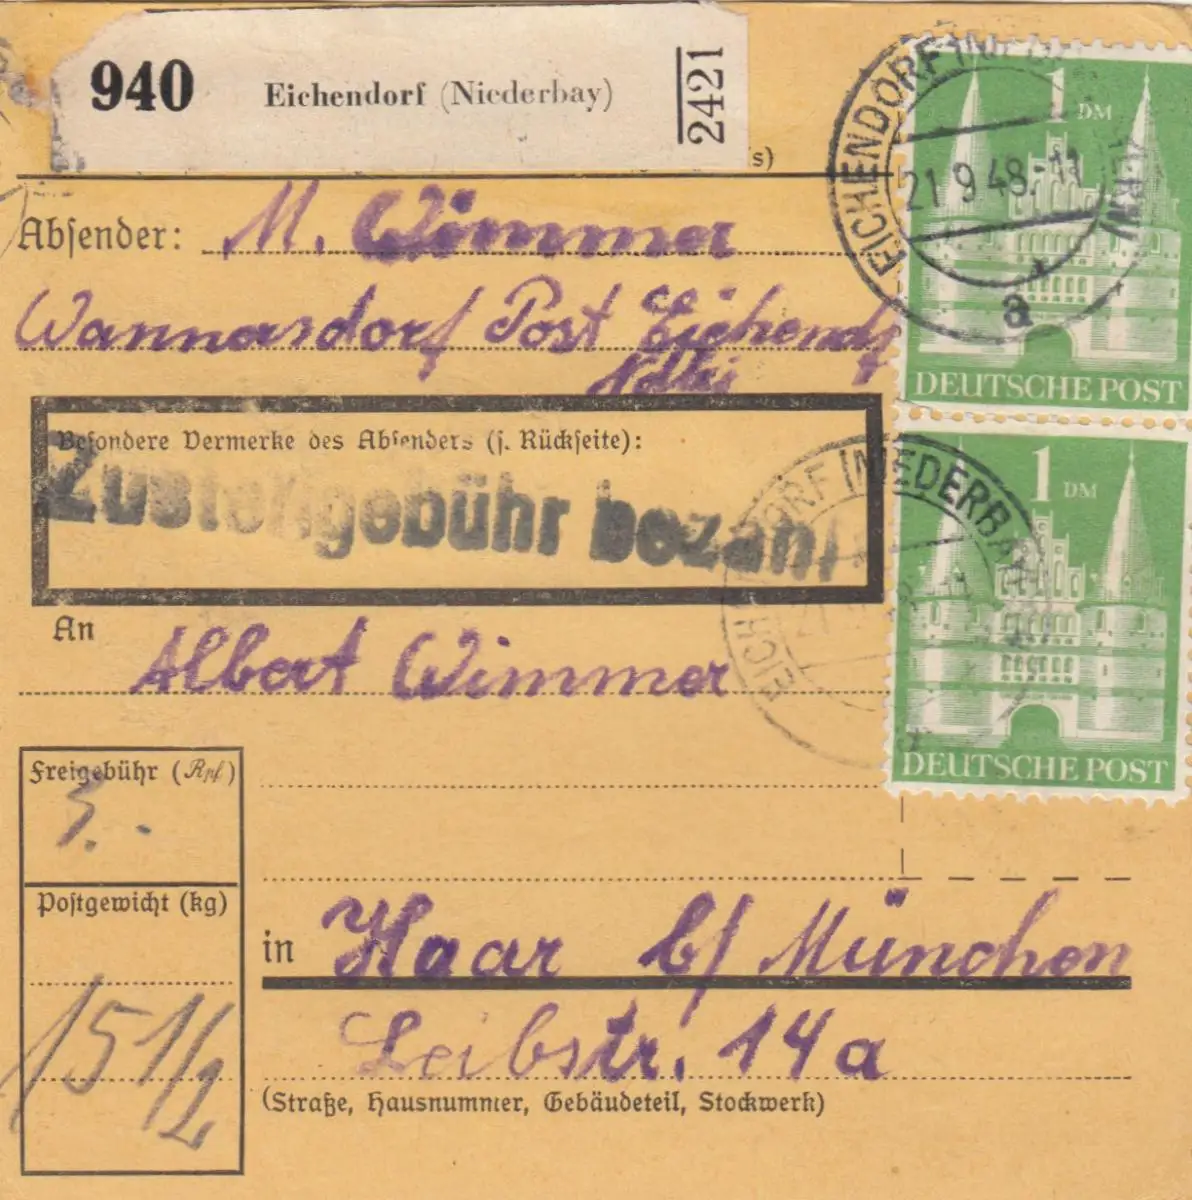 940 Eichendorf (Niederbay) 2421
s)
Absender: M. Wimmer
Wannersdorf Post Eichendf
Ndby
Besondere Vermerke des Absenders (s. Rückseite):
Zustellgebühr bezahl
An
Albert Wimmer
Freigebühr (Rpf)
Postgewicht (kg)
15 1/2
in Haar b/ München
Leibstr. 14a
(Straße, Hausnummer, Gebäudeteil, Stockwerk)
1 DM
DEUTSCHE POST
1 DM
DEUTSCHE POST
EICHENDORF (NIEDERBAYERN)
21.9.48.-11
a
EICHENDORF (NIEDERBAY